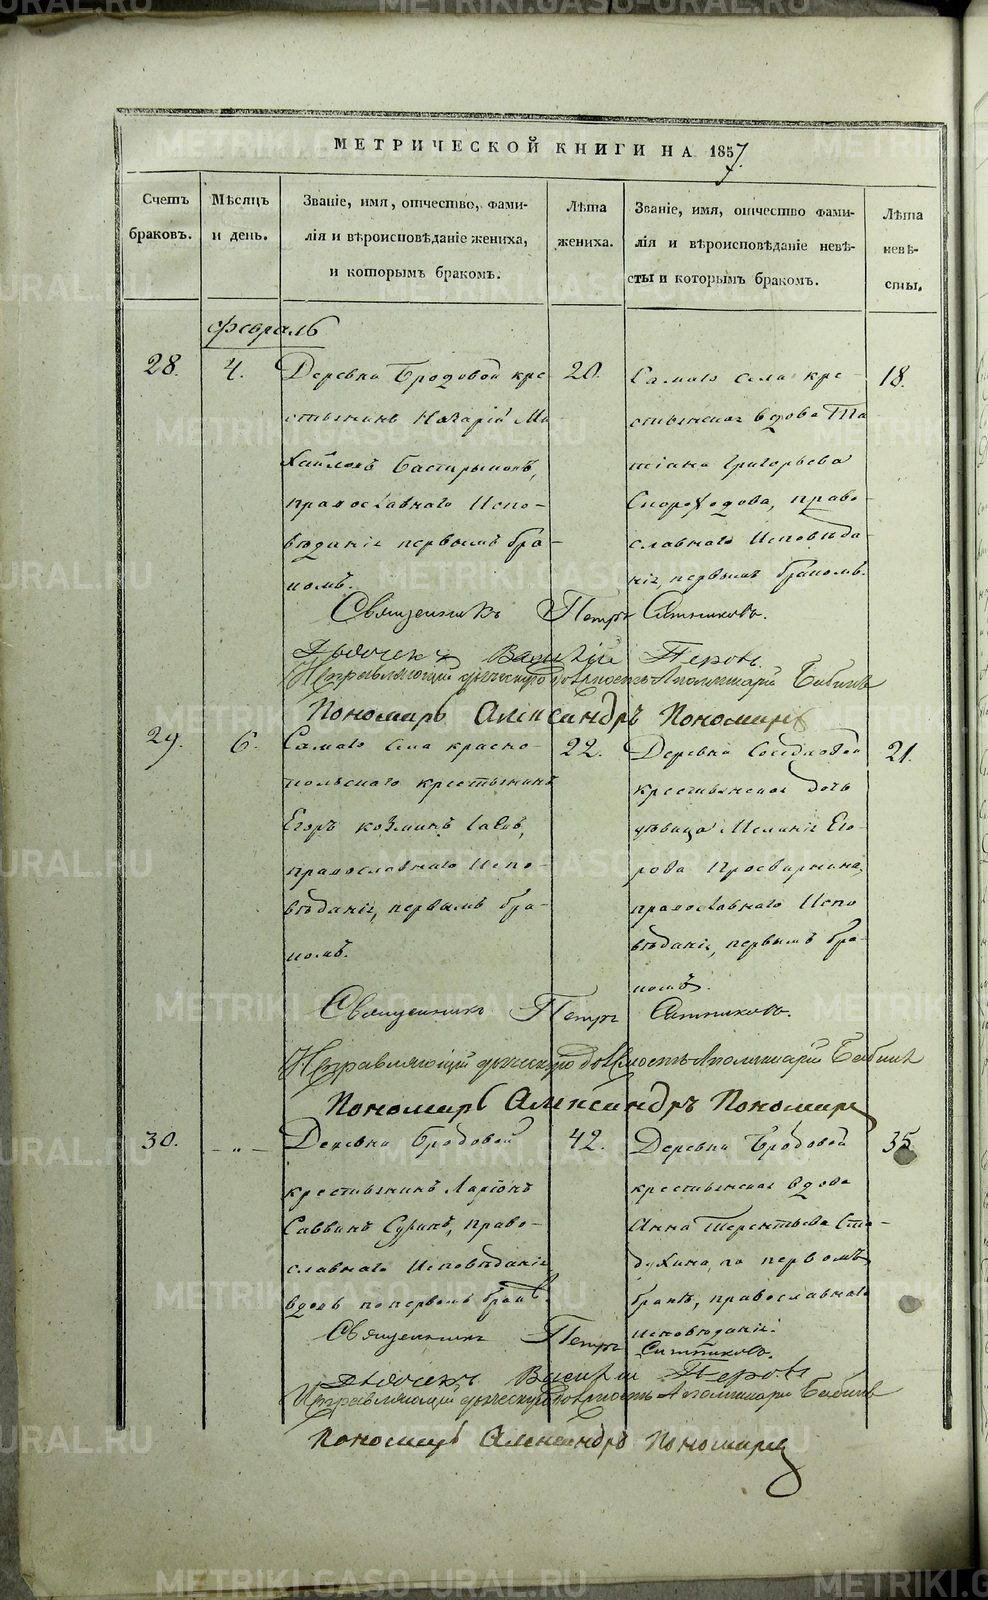 МЕТРИЧЕСКОЙ КНИГИ НА 1857
Счетъ браковъ.
Мѣсяцъ и день.
Званіе, имя, отчество, фами-
лія и вѣроисповѣданіе жениха,
и которымъ бракомъ.
Лѣта жениха.
Званіе, имя, отчество фами-
лія и вѣроисповѣданіе невѣ-
сты и которымъ бракомъ.
Лѣта невѣ-
сты.
Февраль
28.
4.
Деревни Бродовой кре
стьянинъ Назарій Ми
хайловъ Бастрыковъ,
православнаго Испо-
вѣданія первымъ бра-
комъ.
20.
Самаго села кре-
стьянская вдова Та
тіана Григорьева
Скороходова, право-
славнаго Исповѣда-
нія, первымъ бракомъ.
18.
Священникъ Петръ Ситниковъ.
Дьячекъ Василій Перовъ.
Исправляющій дьяческую должность Аполлинарій Бабинъ
Пономарь Александръ Пономаревъ
29.
6.
Самаго села красно-
польскаго крестьянинъ
Егоръ Козминъ
православнаго Испо-
вѣданія, первымъ бра-
комъ.
22.
Деревни Соседковой
крестьянская дочь
дѣвица Меланія Его-
рова Просвирнина,
православнаго Испо
вѣданія, первымъ бра-
комъ.
21.
Священникъ Петръ Ситниковъ.
Исправляющій дьяческую должность Аполлинарій Бабинъ
Пономарь Александръ Пономаревъ
30.
- „ -
Деревни Бродовой
крестьянинъ Ларіонъ
Саввинъ Суринъ, право-
славнаго Исповѣданія
вдовъ по первомъ бракѣ.
42.
Деревни Бродовой
крестьянская вдова
Анна Терентьева Ста-
духина, по первомъ
бракѣ, православнаго
исповѣданія.
35
Священникъ Петръ Ситниковъ.
Дьячекъ Василій Перовъ
Исправляющій дьяческую должность Аполлинарій Бабинъ
Пономарь Александръ Пономаревъ
METRIKI.GASO-URAL.RU